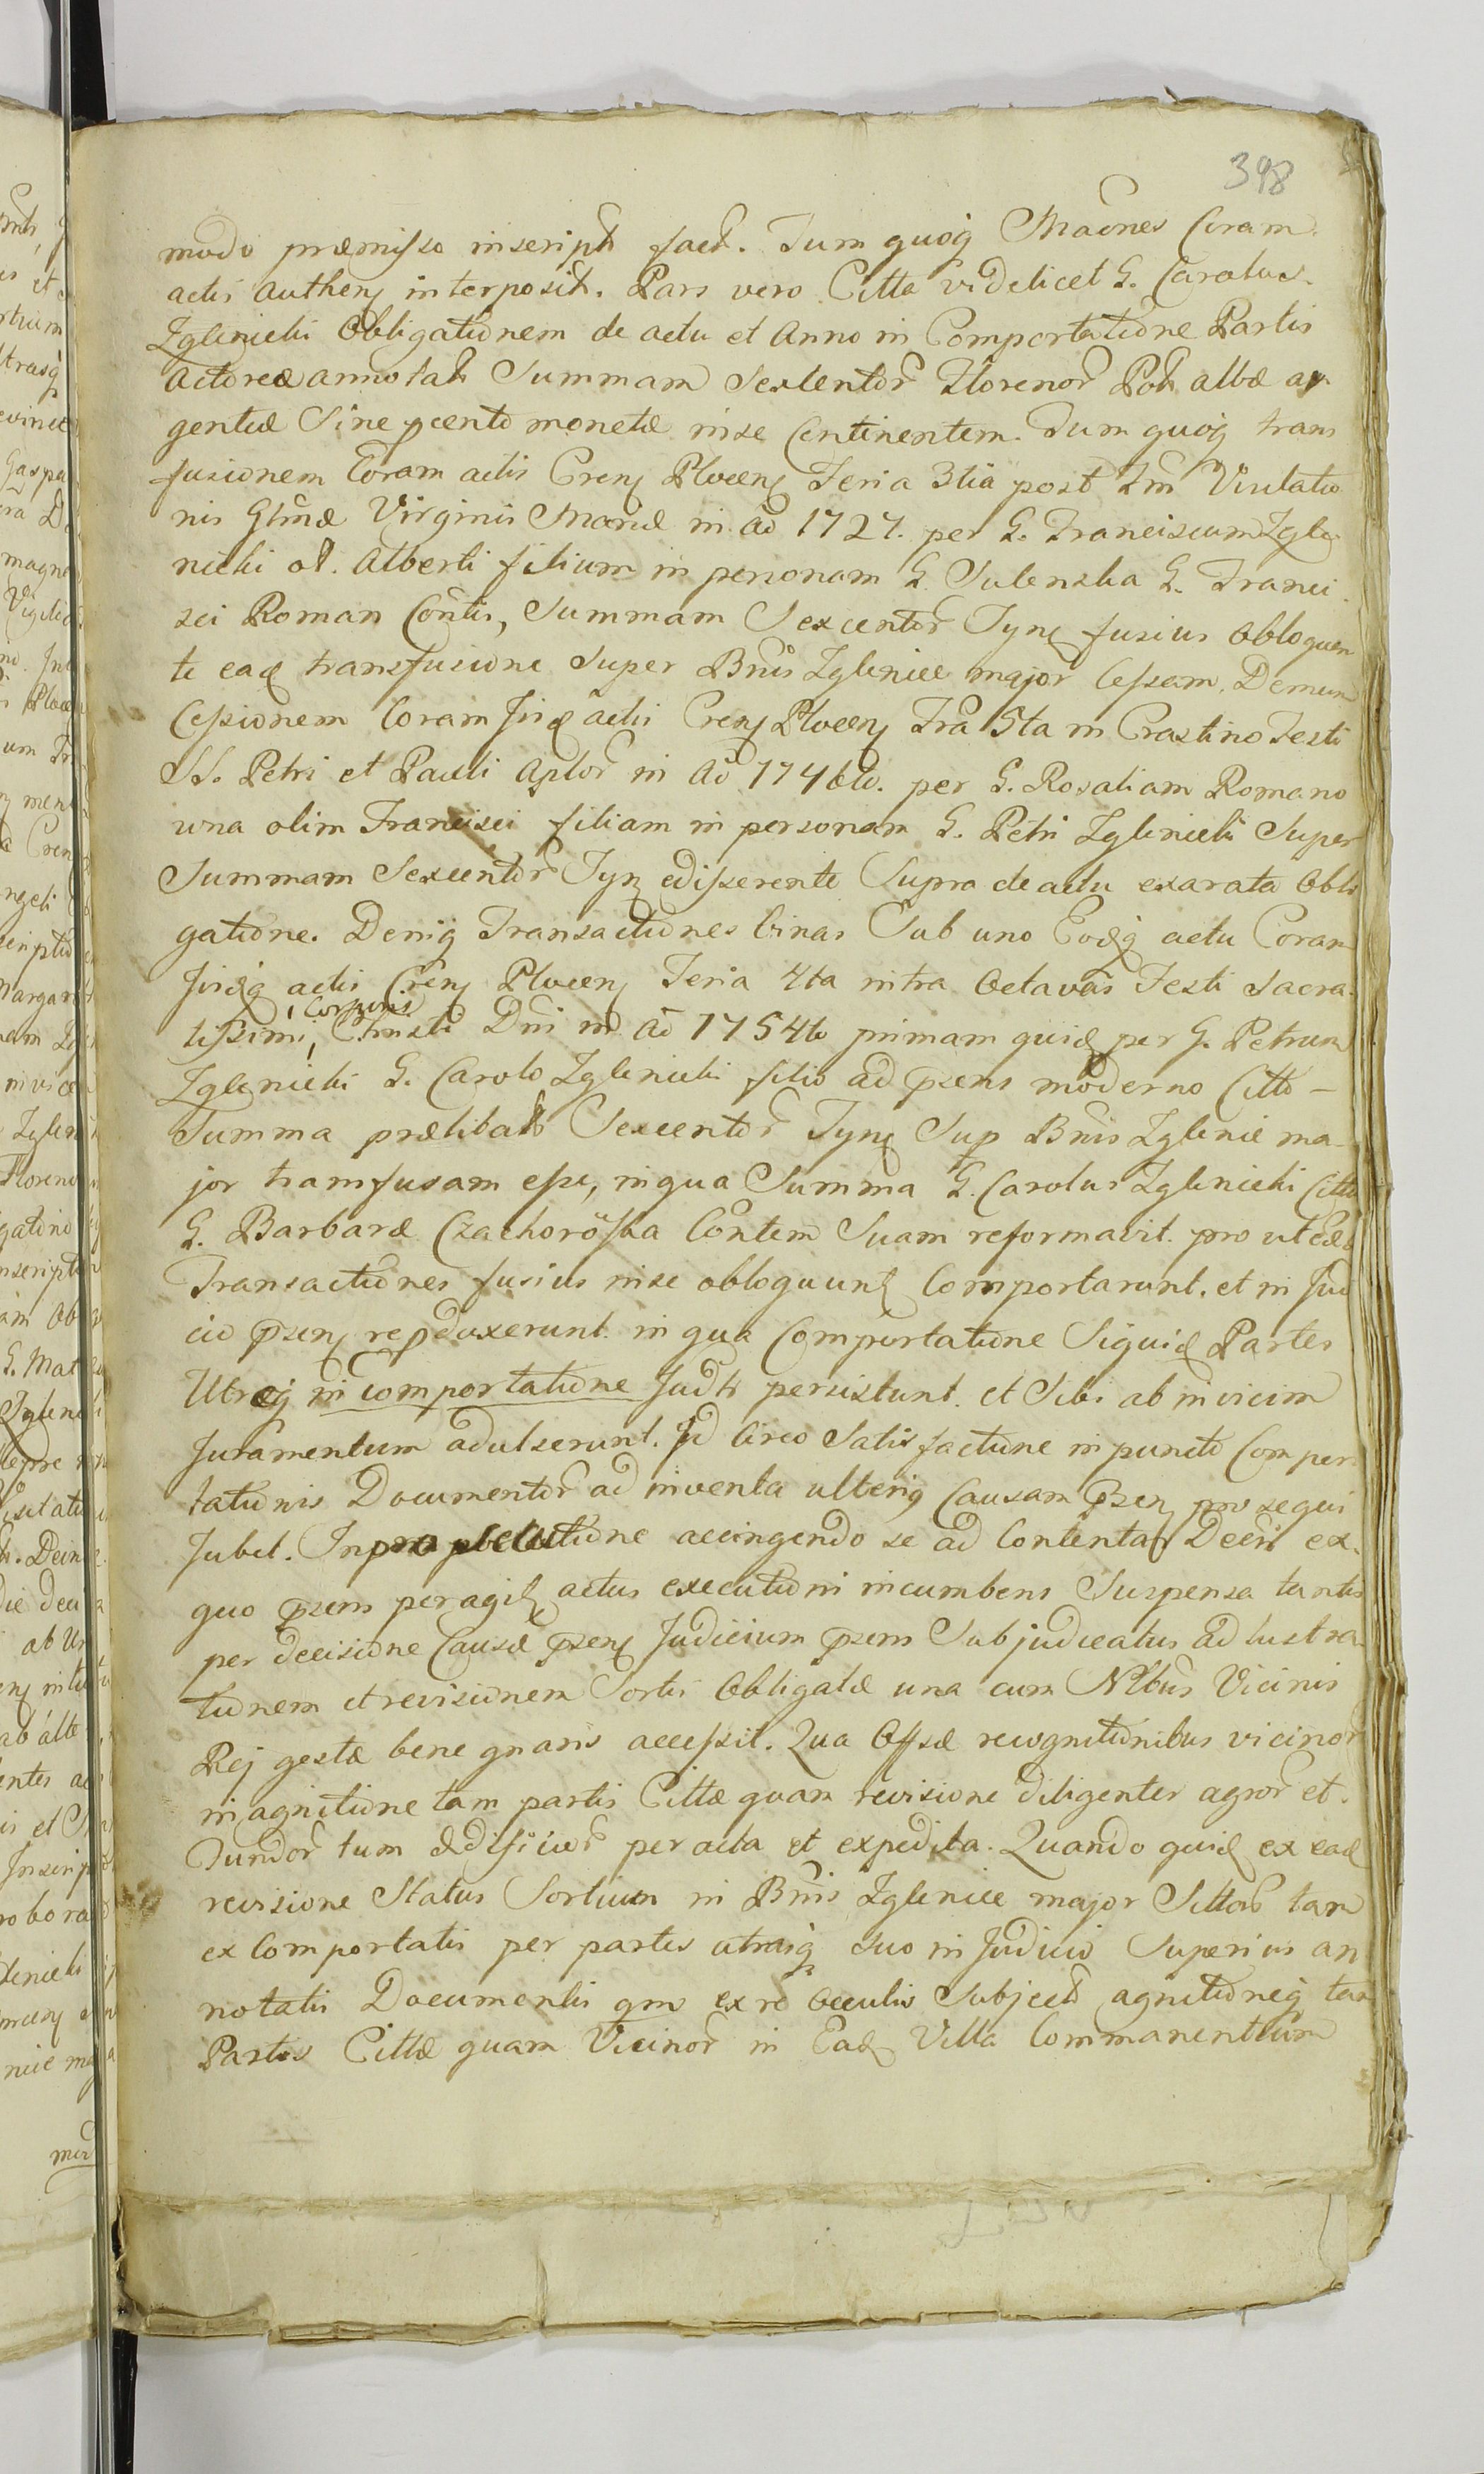 398
modo præmisso inscript fact. Tum quoq Maõnes Coram
actis Authen interposit. Pars vero Citta videlicet G. Carolus
Zglinicki Obligationem de actu et Anno in Comportatione Partis
Actoreæ annotat Summam Sexcentor Florenor Pol albæ ar
genteæ Sine pcento monetæ in se Continentem. Tum quoq trans
fusionem Coram actis Cren Plocen Feria 3tia post Fm Visitatio
nis Glmæ Virginis Mariæ in Ao 1727. per G. Franciscum Zgli
nicki ol. Alberti filium in personam G. Sulenska G. Franci
sci Roman Contis, Summam Sexcentor Tyn fusius obloquen
te ead transfusione Super Bnis Zglinice major Cessam. Demum
Cessionem Coram iisd actis Cren Plocen Fra 5ta in Crastino Festi
SS. Petri et Pauli Aplor in Ao 1746to. per G. Rosaliam Romano
wna olim Francisci filiam in personam G. Petri Zglinicki Super
Summam Sexcentor Tyn edisserente Supra de actu exarata Obli
gatione. Deniq Transactiones binas Sub uno Eodq actu Coram
iisdq actis Cren Plocen Feria 4ta intra Octavas Festi Sacra
tissimi Corporis Christi Dni in Ao 1754to primam quid per G. Petrum
Zglinicki G. Carolo Zglinicki filio ad psens moderno Citto –
Summa prælibat Sexcentor Tyn Sup Bnis Zglinic ma
jor transfusam esse, in qua Summa G. Carolus Zglinicki Cittus
G. Barbaræ Czachoroska Contem Suam reformavit. pro ut eæd
Transactiones fusius in se obloquunt Comportarunt. et in Judi
cio psen repduxerunt. in qua Comportatione Siquid Partes
Utræq in comportatione Judti persistunt. et Sibi ab invicem
Juramentum adulserunt. Id Circo Satisfactione in puncto Compor
tationis Documentor ad inventa ulterig Causam Psen pro sequi
Jubet. In accingendo se ad Contenta Decri ex
quo psens peragit actus executioni incumbens Suspensa tantis
per decisione Causæ psen Judicium psens Subjudicatus ad lustra
tionem et revisionem Sortis Obligatæ una cum Nlbus Vicinis
Rej gestæ bene gnaris accessit. Qua Offsæ recognitionibus vicinor
in agnitione tam partis Cittæ quam revisione diligenter agror et
Fundor tum ædificior per acta et expedita. Quando quid ex ead
revisione Status Sortium in Bnis Zglinice major Sittar tam
ex Comportatis per partes utrasq suo in Judicio Superius an
notatis Documentis qm ex re Occulis Subject agnitioneq tam
Partis Cittæ quam Vicinor in Ead Villa Commanentium